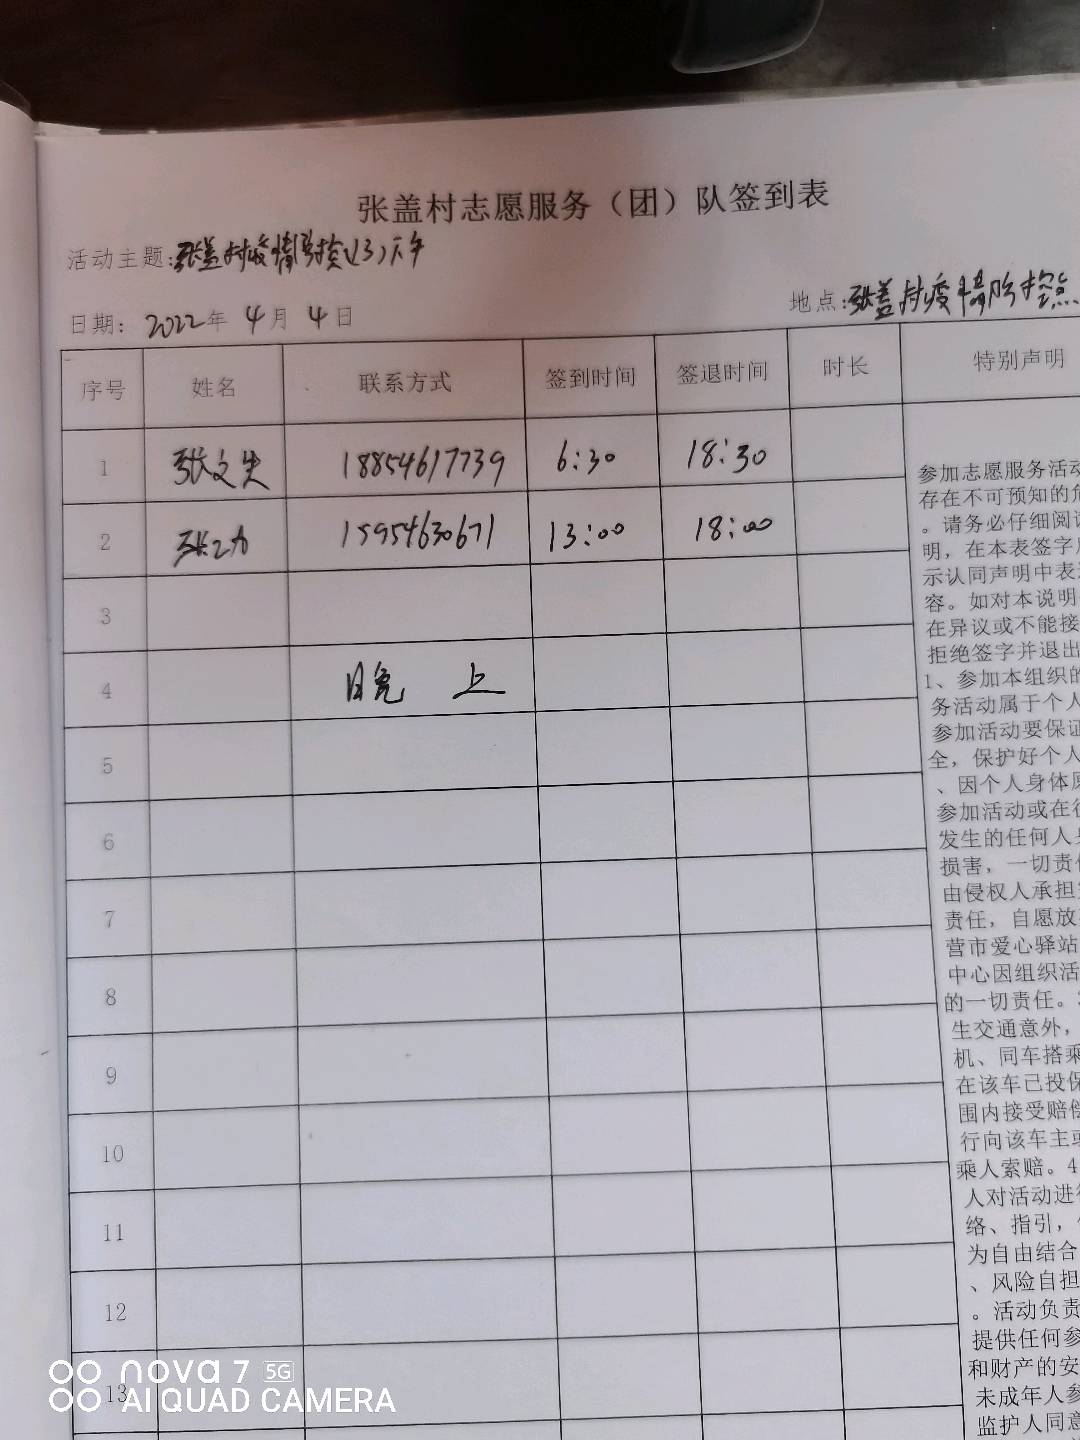 张盖村志愿服务（团）队签到表
活动主题:张盖村疫情防控(3)下午
日期: 2022年 4月 4日
地点:张盖村疫情防控点
序号 姓名 联系方式 签到时间 签退时间 时长 特别声明
1 张文 18854617739 6:30 18:30
2 张 15954630671 13:00 18:00
3
4 晚 上
5
6
7
8
9
10
11
12
13
参加志愿服务活动
存在不可预知的危
。请务必仔细阅读
明，在本表签字
示认同声明中表
容。如对本说明
在异议或不能接
拒绝签字并退出
1、参加本组织的
务活动属于个人
参加活动要保证
全，保护好个人
、因个人身体原
参加活动或在往
发生的任何人身
损害，一切责任
由侵权人承担
责任，自愿放
营市爱心驿站
中心因组织活
的一切责任。
生交通意外，
机、同车搭乘
在该车已投保
围内接受赔偿
行向该车主或
乘人索赔。4
人对活动进行
络、指引，
为自由结合
、风险自担
。活动负责
提供任何参
和财产的安
未成年人参
监护人同意
nova 7 5G
AI QUAD CAMERA